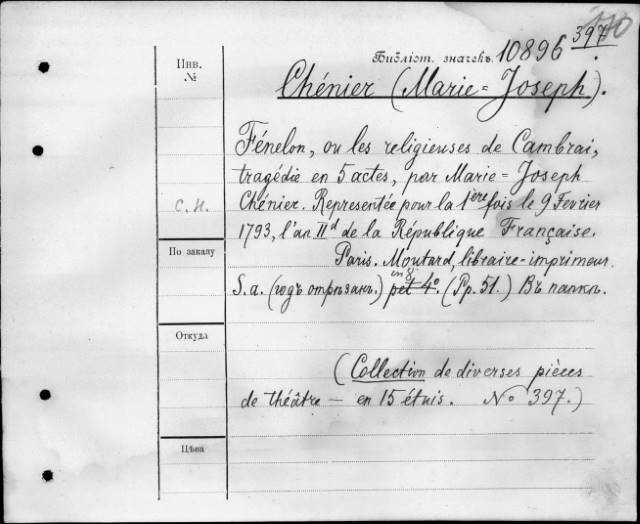 Инв. №
Библіот. значекъ 10896 397
Chénier (Marie-Joseph).
Fénelon, ou les religieuses de Cambrai,
tragédie en 5 actes, par Marie-Joseph
Chénier. Representée pour la 1ère fois le 9 Fevrier
С. Н.
1793, l'an IId de la République Française.
По заказу
Paris. Moutard, libraire-imprimeur.
S.a. (годъ отрѣзанъ.) pet 4º. in 8º (Pp. 51.) Въ папкѣ.
Откуда
(Collection de diverses pièces
de théâtre — en 15 étuis. Nº 397.)
Цѣна